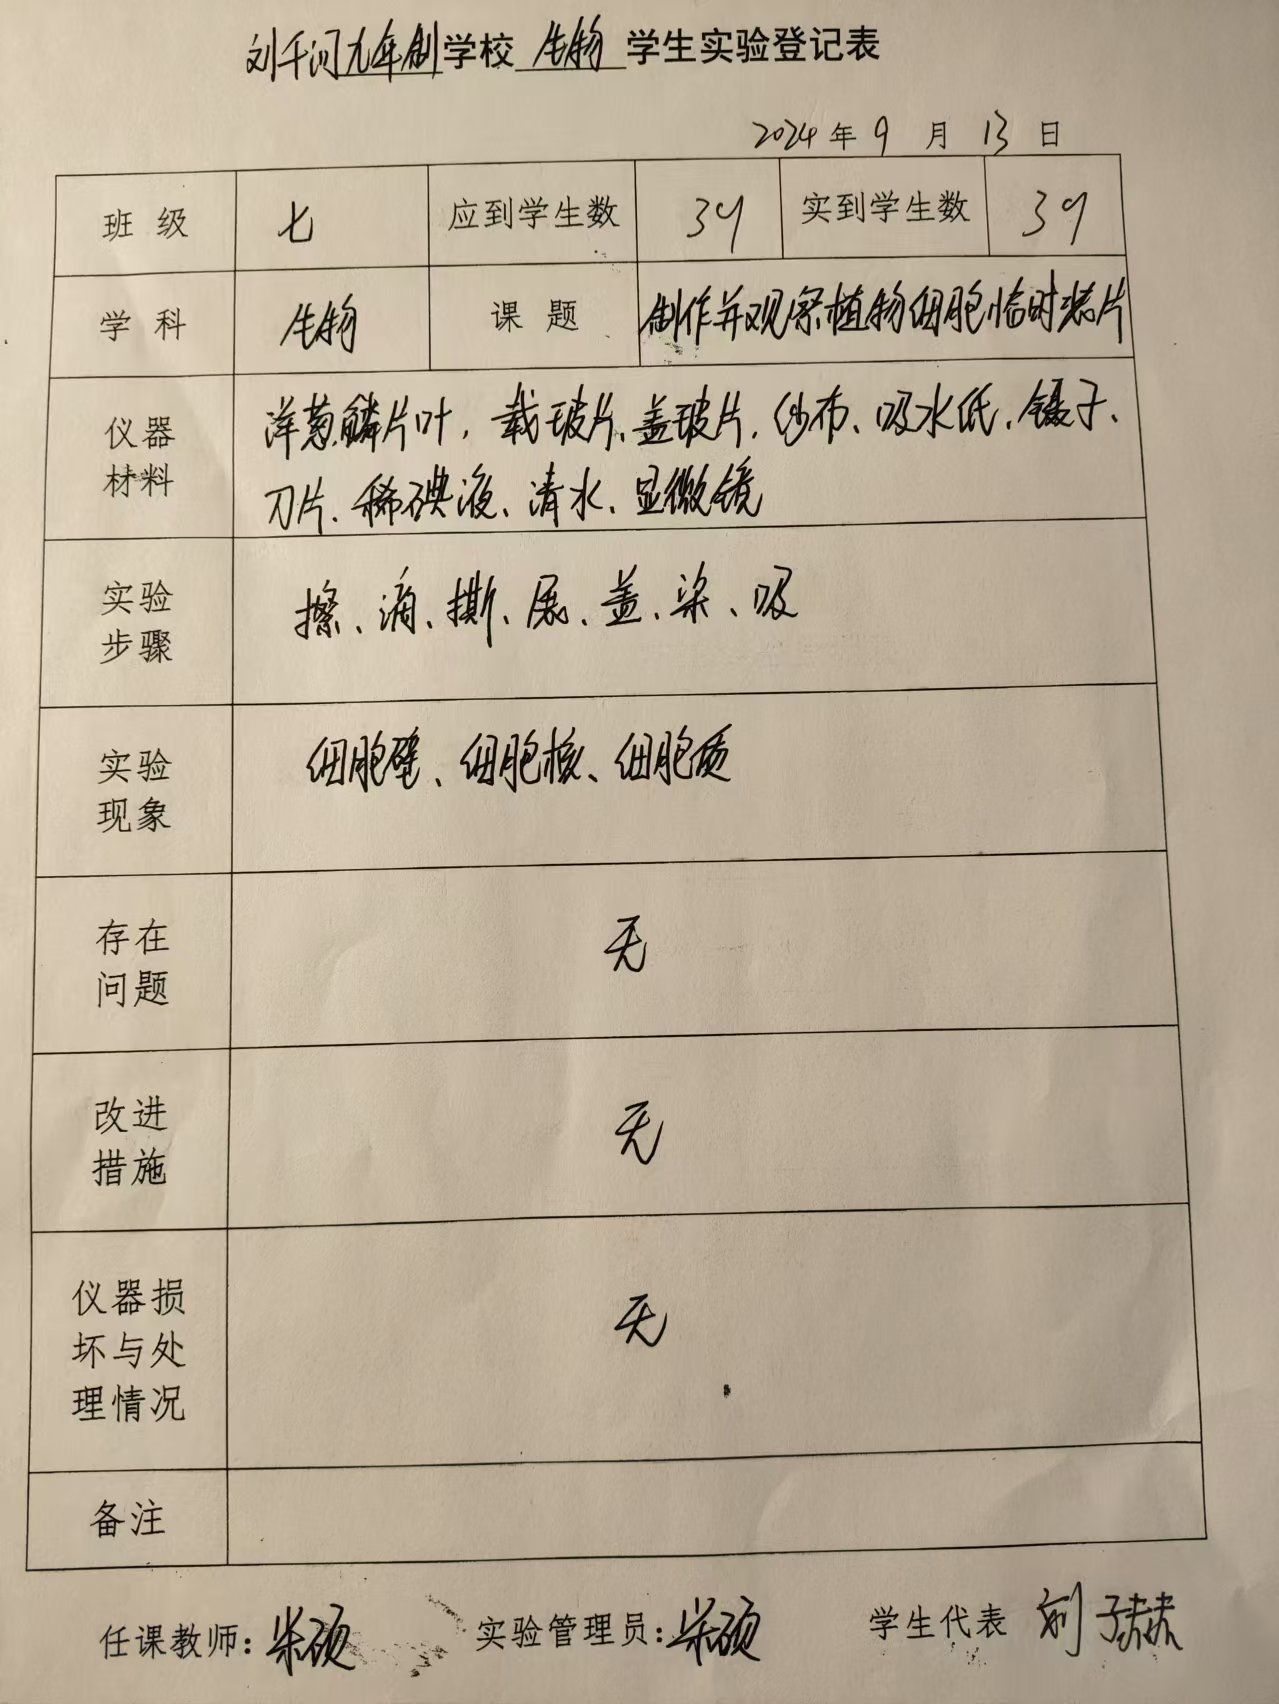 刘千河九年制学校 生物 学生实验登记表
2024 年 9 月 13 日
班 级 七 应到学生数 39 实到学生数 39
学 科 生物 课 题 制作并观察植物细胞临时装片
仪器材料
洋葱鳞片叶、载玻片、盖玻片、纱布、吸水纸、镊子、
刀片、稀碘液、清水、显微镜
实验步骤
擦、滴、撕、展、盖、染、吸
实验现象
细胞壁、细胞核、细胞质
存在问题
无
改进措施
无
仪器损坏与处理情况
无
备注
任课教师: 朱硕 实验管理员: 朱硕 学生代表 刘子赫